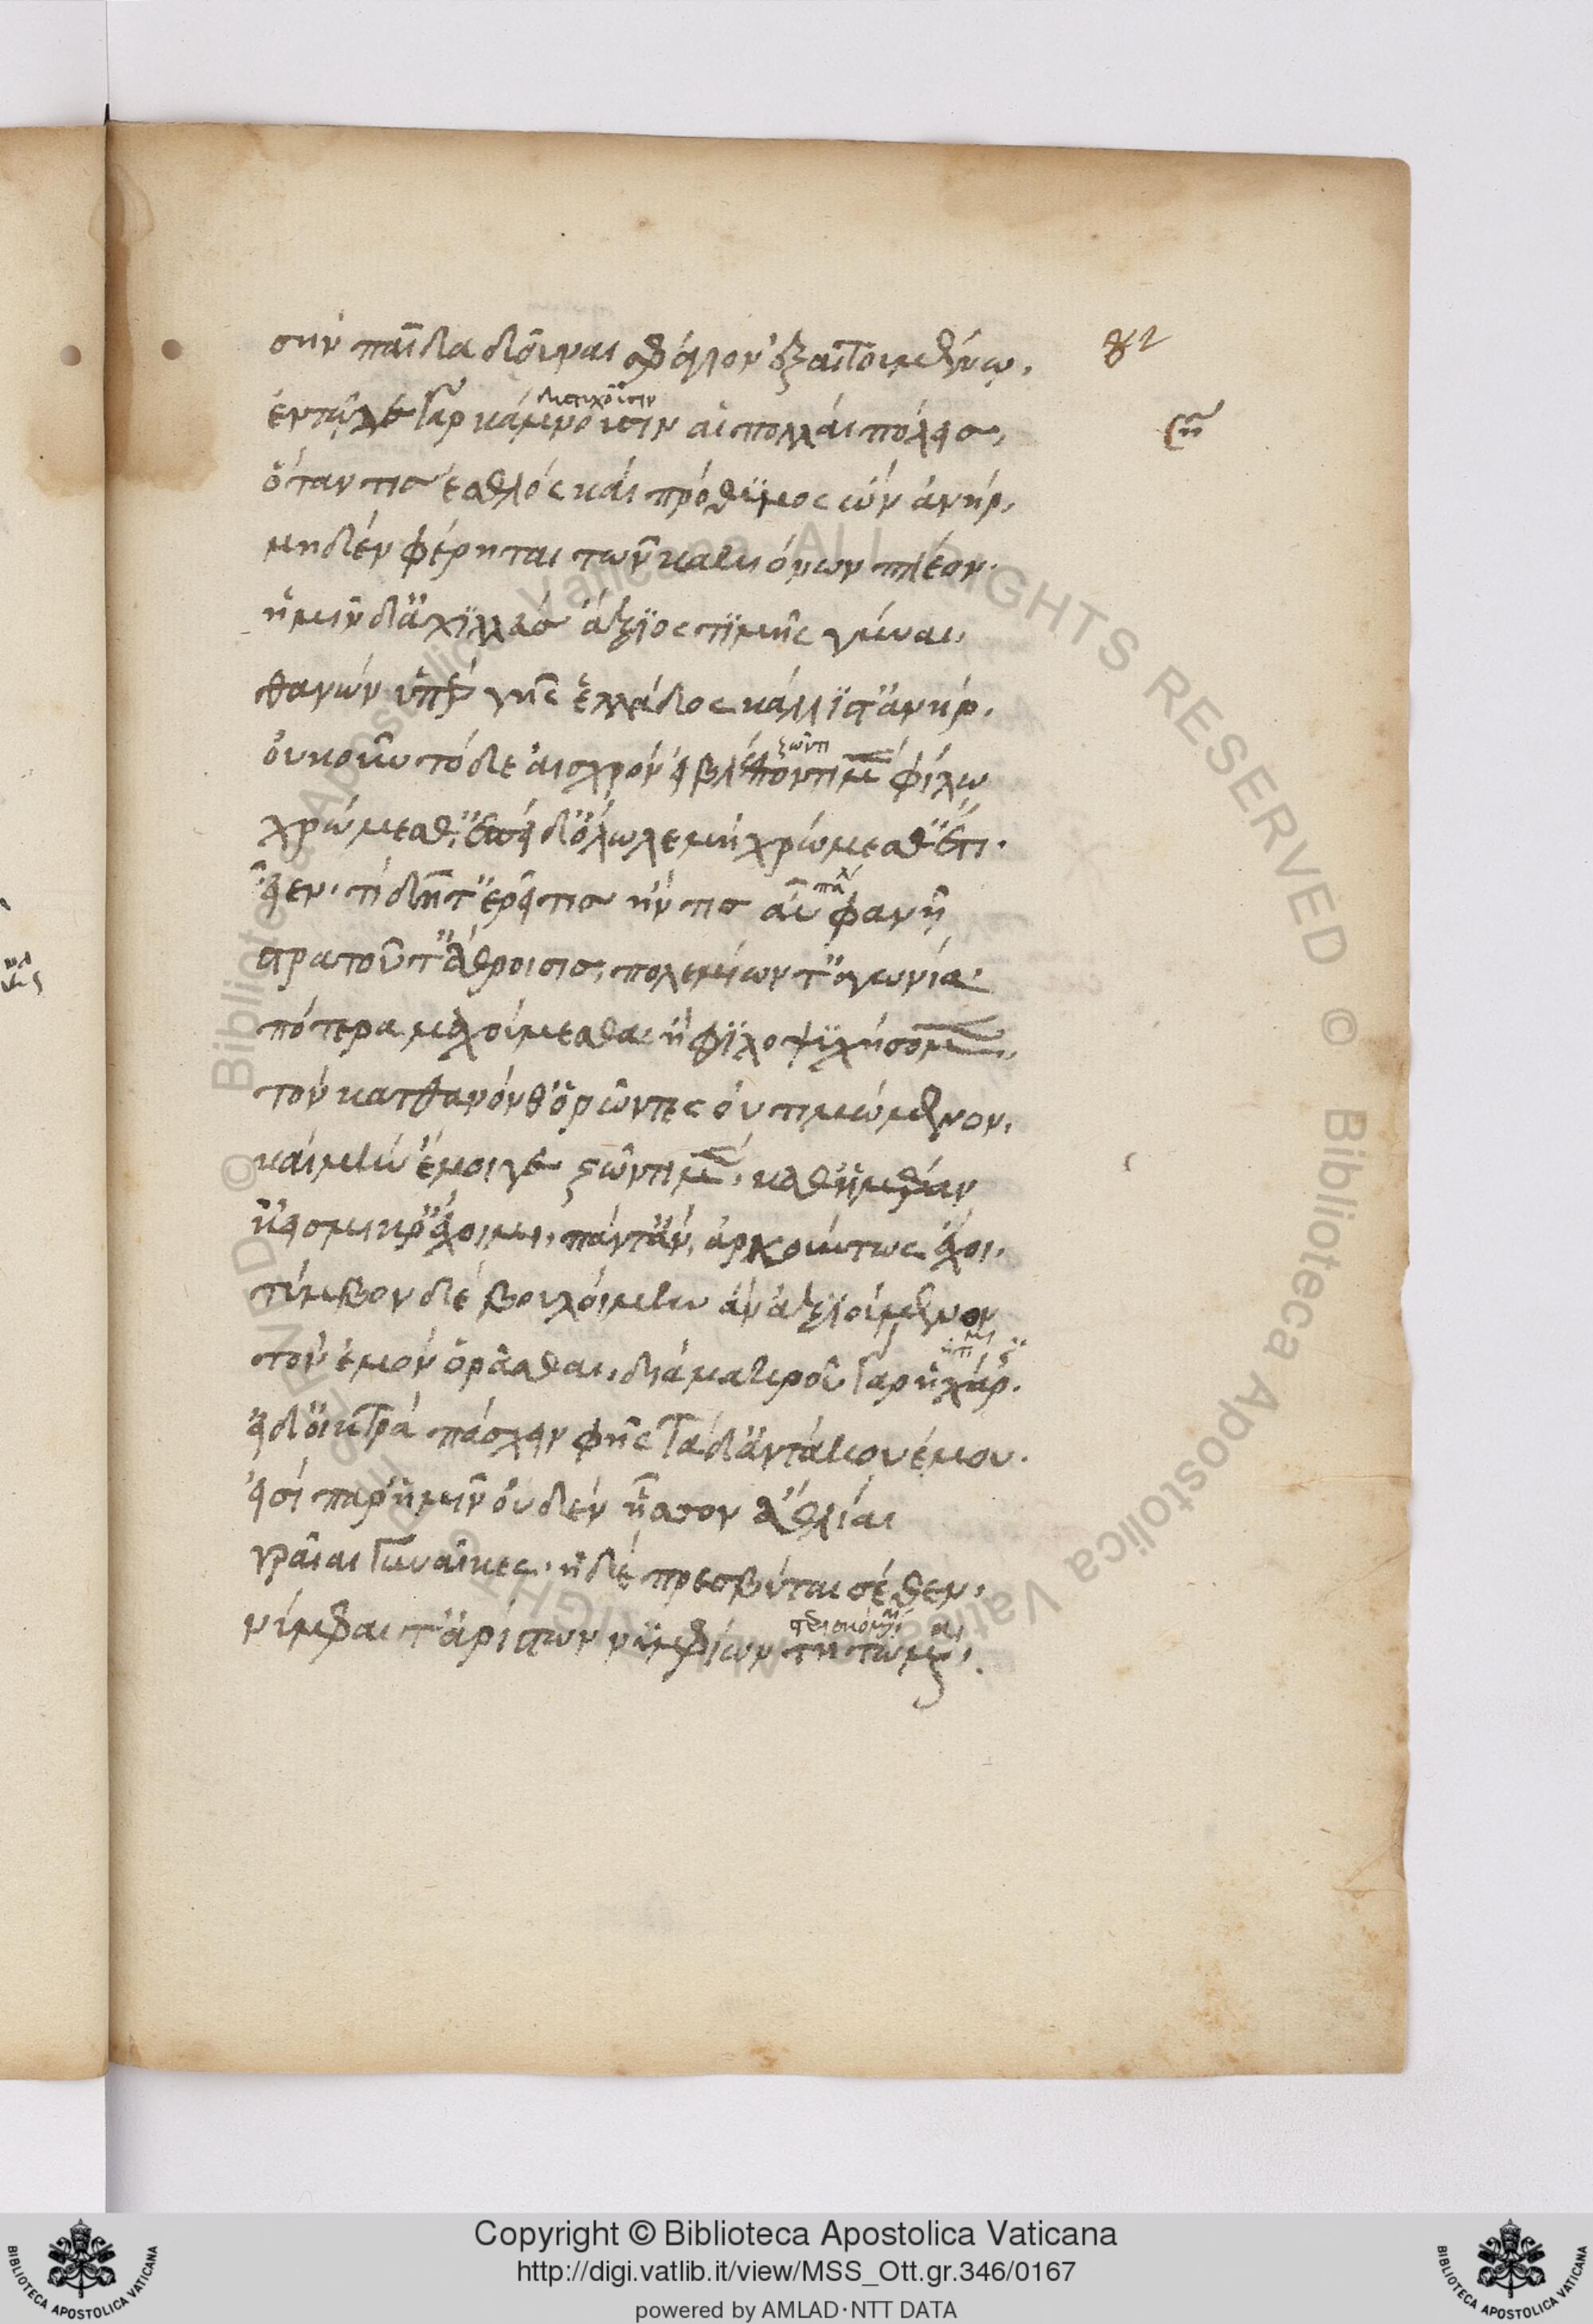 82
σὴν παῖδα δοῦναι σφάγιον ἐξαιτουμένῳ.
ἐν τῷδε γὰρ κάμνουσιν αἱ πολλαὶ πόλεις,
ὅταν τις ἐσθλὸς καὶ πρόθυμος ὢν ἀνὴρ,
μηδὲν φέρηται τῶν κακιόνων πλέον.
ἡμῖν δ' ἀχιλλεὺς ἄξιος τιμῆς γύναι,
θανὼν ὑπὲρ γῆς ἑλλάδος κάλλιστ' ἀνήρ.
οὐκοῦν τόδε αἰσχρὸν εἰ βλέποντι μὲν φίλῳ
ζῶντι
χρώμεσθ', ἐπεὶ δ' ὄλωλε μὴ χρώμεσθ' ἔτι.
εἶεν. τί δῆτ' ἐρεῖ τις ἤν τις αὖ φανῇ
στρατοῦ τ' ἄθροισις, πολεμίων τ' ἀγωνία.
πότερα μαχούμεσθα. ἢ φιλοψυχήσομεν,
τὸν κατθανόνθ' ὁρῶντες οὐ τιμώμενον.
καὶ μὴν ἔμοιγε ζῶντι μὲν, καθ' ἡμέραν
κεἰ σμίκρ' ἔχοιμι, πάντ' ἂν, ἀρκούντως ἔχοι.
τύμβον δὲ βουλοίμην ἂν ἀξιούμενον
τὸν ἐμὸν ὁρᾶσθαι, διὰ μακροῦ γὰρ ἡ χάρις.
εἰ δ' οἰκτρὰ πάσχειν φῂς τάδ' ἀντάκου ἐμου.
εἰσὶ παρ' ἡμῖν οὐδὲν ἧσσον ἄθλιαι
γραῖαι γυναῖκες. ἠδὲ πρεσβύται σέθεν,
νύμφαι τ' ἀρίστων νυμφίων τητώμεναι,
Copyright © Biblioteca Apostolica Vaticana
http://digi.vatlib.it/view/MSS_Ott.gr.346/0167
powered by AMLAD·NTT DATA